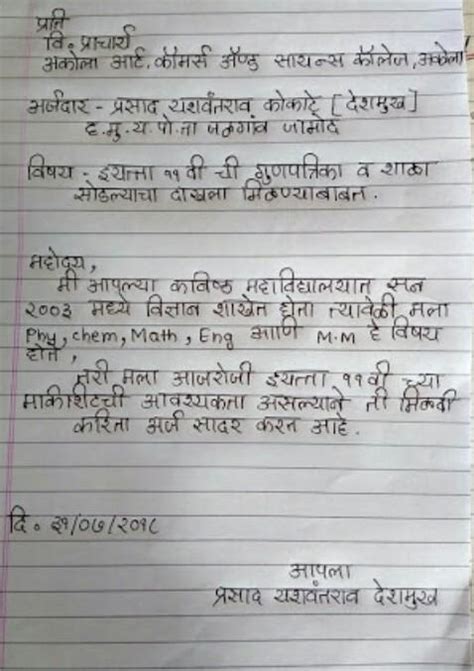 प्रति
वि. प्राचार्य
अकोला आर्ट, कॉमर्स ॲण्ड सायन्स कॉलेज, अकोला
अर्जदार - प्रसाद यशवंतराव कोकाटे [देशमुख]
द. मु. य. पो. ता जळगांव जामोद
विषय - इयत्ता ११ वी ची गुणपत्रिका व शाळा
सोडल्याचा दाखला मिळण्याबाबत.
महोदय,
मी आपल्या कनिष्ठ महाविद्यालयात सन
२००३ मध्ये विज्ञान शाखेत होता त्यावेळी मला
Phy, chem, Math, Eng आणि M.M हे विषय
होते,
तरी मला आजरोजी इयत्ता ११वी च्या
मार्कशिटची आवश्यकता असल्याने ती मिळावी
करिता अर्ज सादर करत आहे.
दि. ३१/०७/२०१८
आपला
प्रसाद यशवंतराव देशमुख